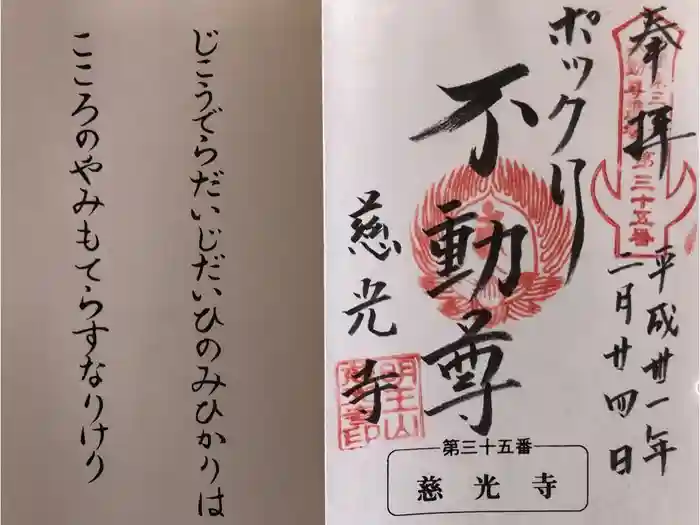 奉拝
第三十五番
平成卅一年
二月廿四日
ポックリ
不動尊
慈光寺
明王山
第三十五番
慈光寺
じこうでらだいじだいひのみひかりは
こころのやみもてらすなりけり